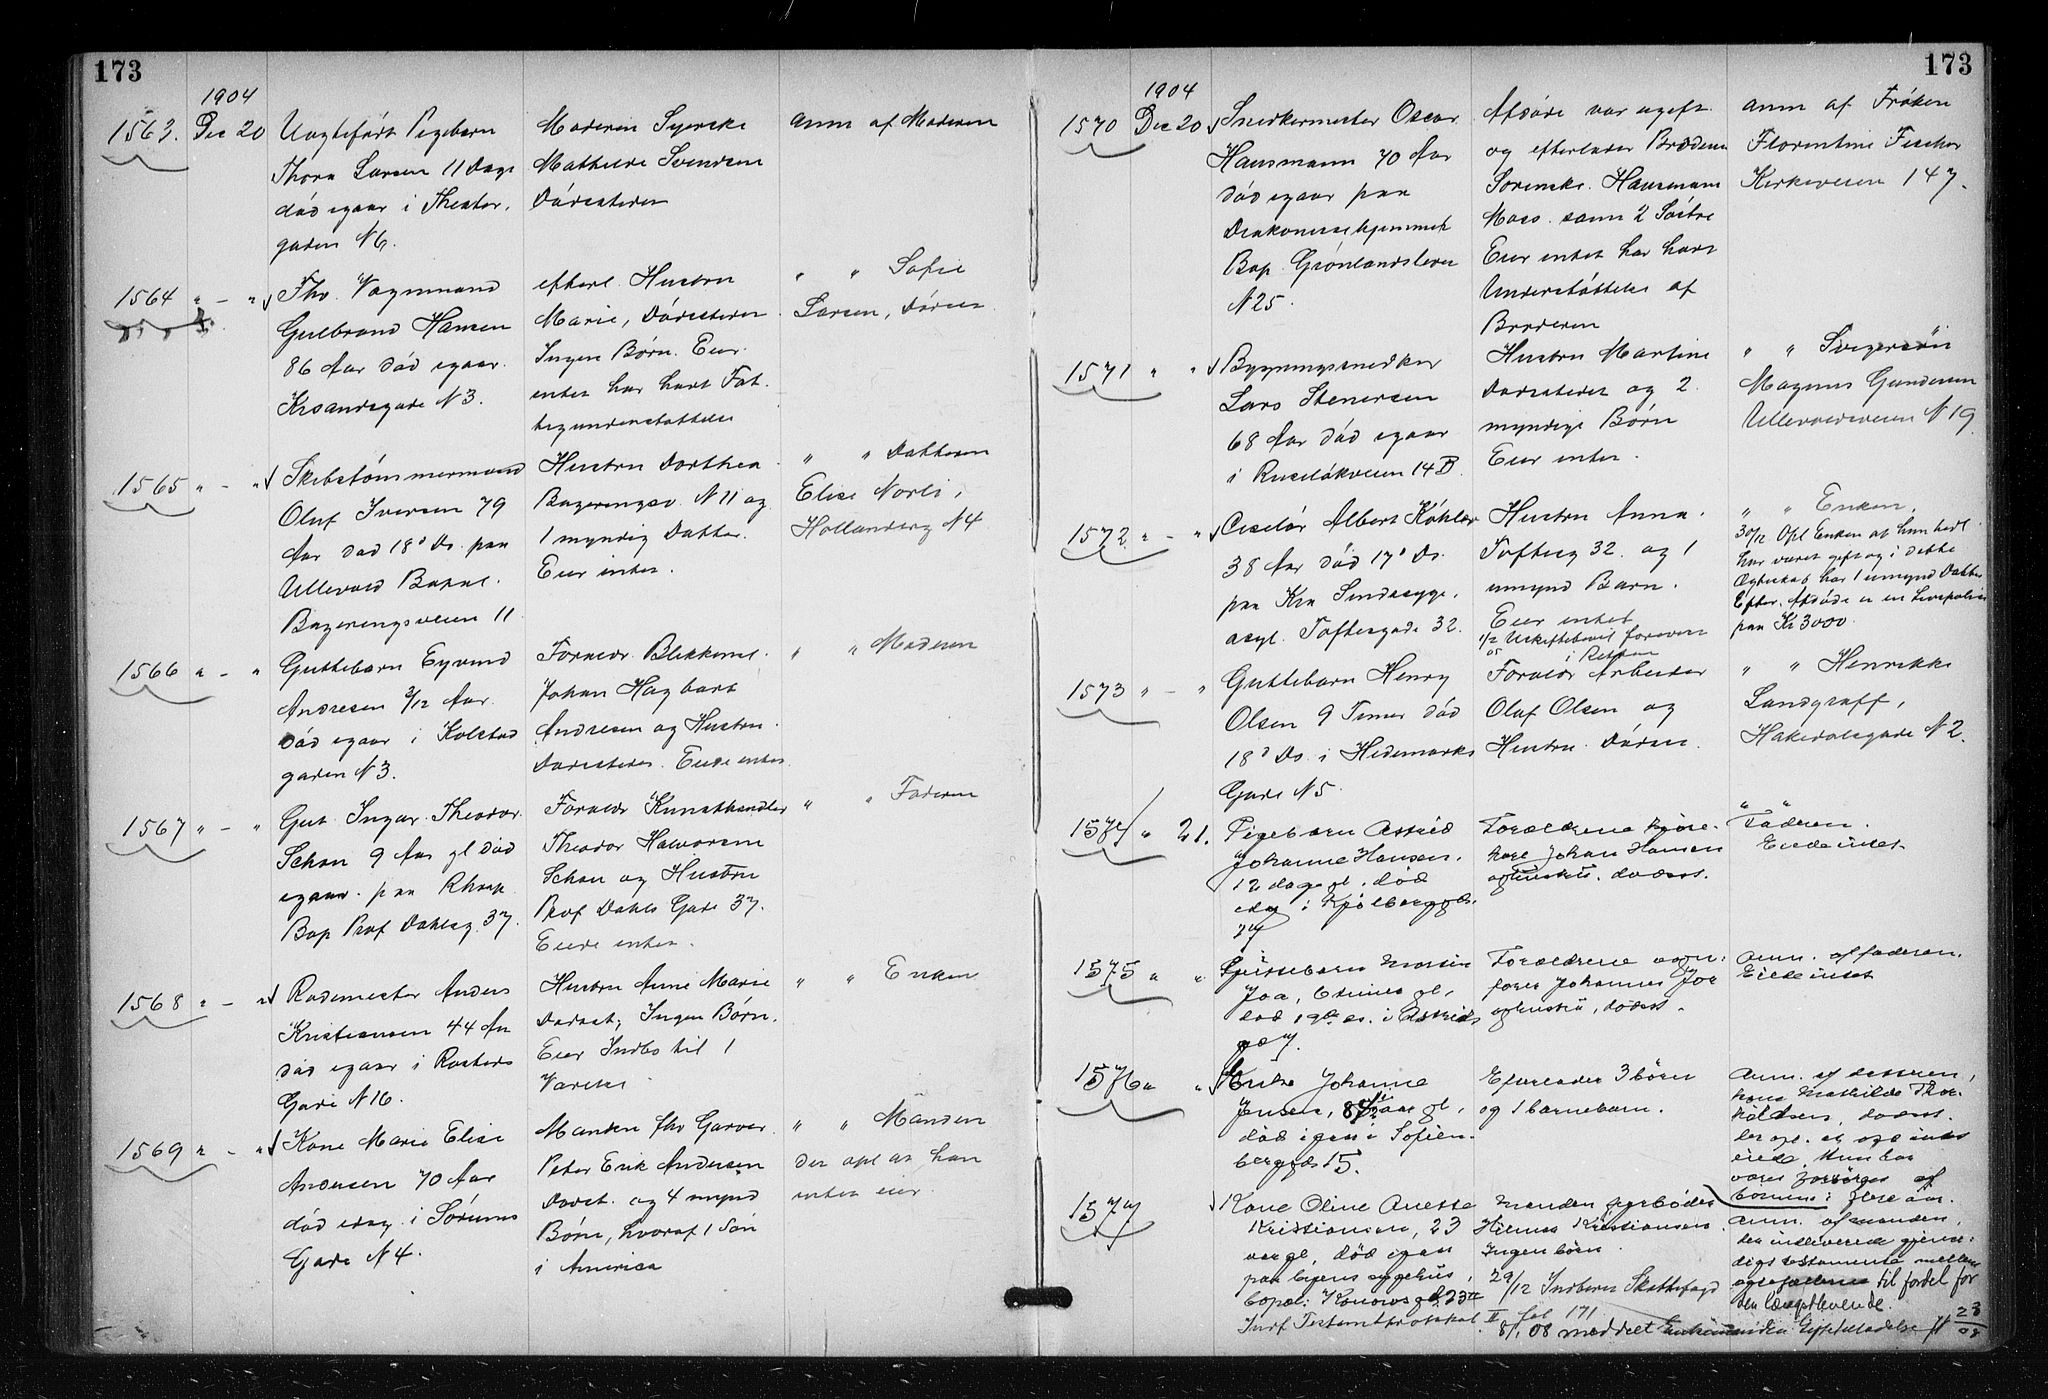 173
1904
1563. Dec 20
Uægtefødt Pigebarn
Thora Larsen 11 Dage
død igaar i Theater-
gaden N 6.
Moderen Syerske
Mathilde Svendsen
Dødsstedet
Anm af Moderen
1564 " - "
Fhv. Vognmand
Gulbrand Hansen
86 Aar død igaar
Krsandsgade N 3.
efterl. Hustru
Marie, Dødsstedet
Ingen Børn. Eier
intet har havt Fat-
tigunderstøttelse
" " Sofie
Larsen, Døds
1565 " - "
Skibstømmermand
Oluf Iversen 79
Aar død 18d Ds. paa
Ullevold Bopæl
Bageringsveien 11
Hustru Dorthea
Bageringsv. N 11 og
1 myndig Datter.
Eier intet.
" " Datteren
Elise Norli,
Hollenderg N 4
1566 " - "
Guttebarn Eyvind
Andresen 3/12 Aar
død igaar i Kolstad
gaden N 3.
Forældr. Blikkensl.
Johan Hagbart
Andresen og Hustru
Dødsstedet. Eiede intet
" " Moderen
1567 " - "
Gut Ingar Theodor
Schou 9 Aar gl død
igaar paa Rhosp
Bop Prof Dahlsg. 37.
Forældr Kunsthandler
Theodor Halvorsen
Schou og Hustru
Prof Dahls Gade 37.
Eiede intet.
" " Faderen
1568 " - "
Rodemester Anders
Kristiansen 44 Aar
død igaar i Rosteds
Gade N 16.
Hustru Anne Marie
Dødsst, Ingen Børn.
Eier Indbo til 1
Værelse
" " Enken
1569 " - "
Kone Marie Elise
Andersen 70 Aar
død idag i Sørums
Gade N 4.
Manden fhv Garver
Peter Erik Andersen
Dødst. og 4 mynd
Børn, hvoraf 1 Søn
i America
" " Manden
der opl at han
intet eier.
173
1904
1570 Dec 20
Snedkermester Oscar
Hansmann 70 Aar
død igaar paa
Diakonissehjemmet
Bop. Grønlandsleret
N 25.
Afdøde var ugift
og efterlader Broderen
Sorenskr. Hansmann
Moss. samt 2 Søstre
Eier intet har havt
Understøttelse af
Broderen
Anm af Frøken
Florentine Fischer
Kirkeveien 147.
1571 " "
Bygningssnedker
Lars Stenersen
68 Aar død igaar
i Ruseløkveien 14 B.
Hustru Martine
Dødsstedet og 2
myndige Børn
Eier intet.
" " Svigersøn
Magnus Gundersen
Ullevoldsveien N 19
1572 " - "
Ciselør Albert Köhler
38 Aar død 17d Ds.
paa Kra Sindssyge-
asyl. Toftesgade 32.
Hustru Anna
Toftesg 32. og 1
umynd Barn.
Eier intet
1/2 05 Uskiftebevil foreviist
i Retten
" " Enken,
30/12 Opl Enken at hun hele
har været gift og i dette
Ægteskab har 1 umynd Datter
Efter Afdøde er en Livspolise
paa Kr 3000.
1573 " - "
Guttebarn Henry
Olsen 9 Timer død
18d Ds. i Hedemarks
Gade N 5.
Forældr Arbeider
Oluf Olsen og
Hustru Dødsst.
" " Henrikke
Landgraff,
Hakedalsgade N 2.
1574 " 21.
Pigebarn Astrid
Johanne Hansen,
12 dage gl. død
idag i Kjølberggd.
27
Forældrene kjøre-
karl Johan Hansen
og hustru, dødsst.
" "
Faderen.
Eiede intet
1575 " "
Guttebarn Martin
Joa, 6 timer gl,
død 19de ds. i Astrids
gd 7.
Forældrene vogn-
fører Johannes Joa
og hustru, dødsst.
Anm. af faderen.
Eiede intet
1576 " "
Enke Johanne
Jensen, 87 aar gl,
død igaar i Sofien-
berggd 15.
Efterlader 3 børn
og 1 barnebarn.
Anm. af datteren,
kone Mathilde Thor-
kildsen, dødsst.
der opl. at afd intet
eiede. Hun har
været forsørget af
børnene i flere aar.
1577
Kone Oline Anette
Kristiansen, 23
aar gl, død igaar
paa byens sygehus,
bopæl: Konows gd. 23
Manden fyrbøder
Hilmar Kristiansen
Ingen børn.
29/12 Indberet Skattefogd
Anm. af manden,
der indleverede gjensi-
digt testamente mellem
ægtefællerne til fordel for
den længstlevende.
Indf Testamentprotokol II fol 171
8/1 08 meddelt Enkemanden Giftetilladelse